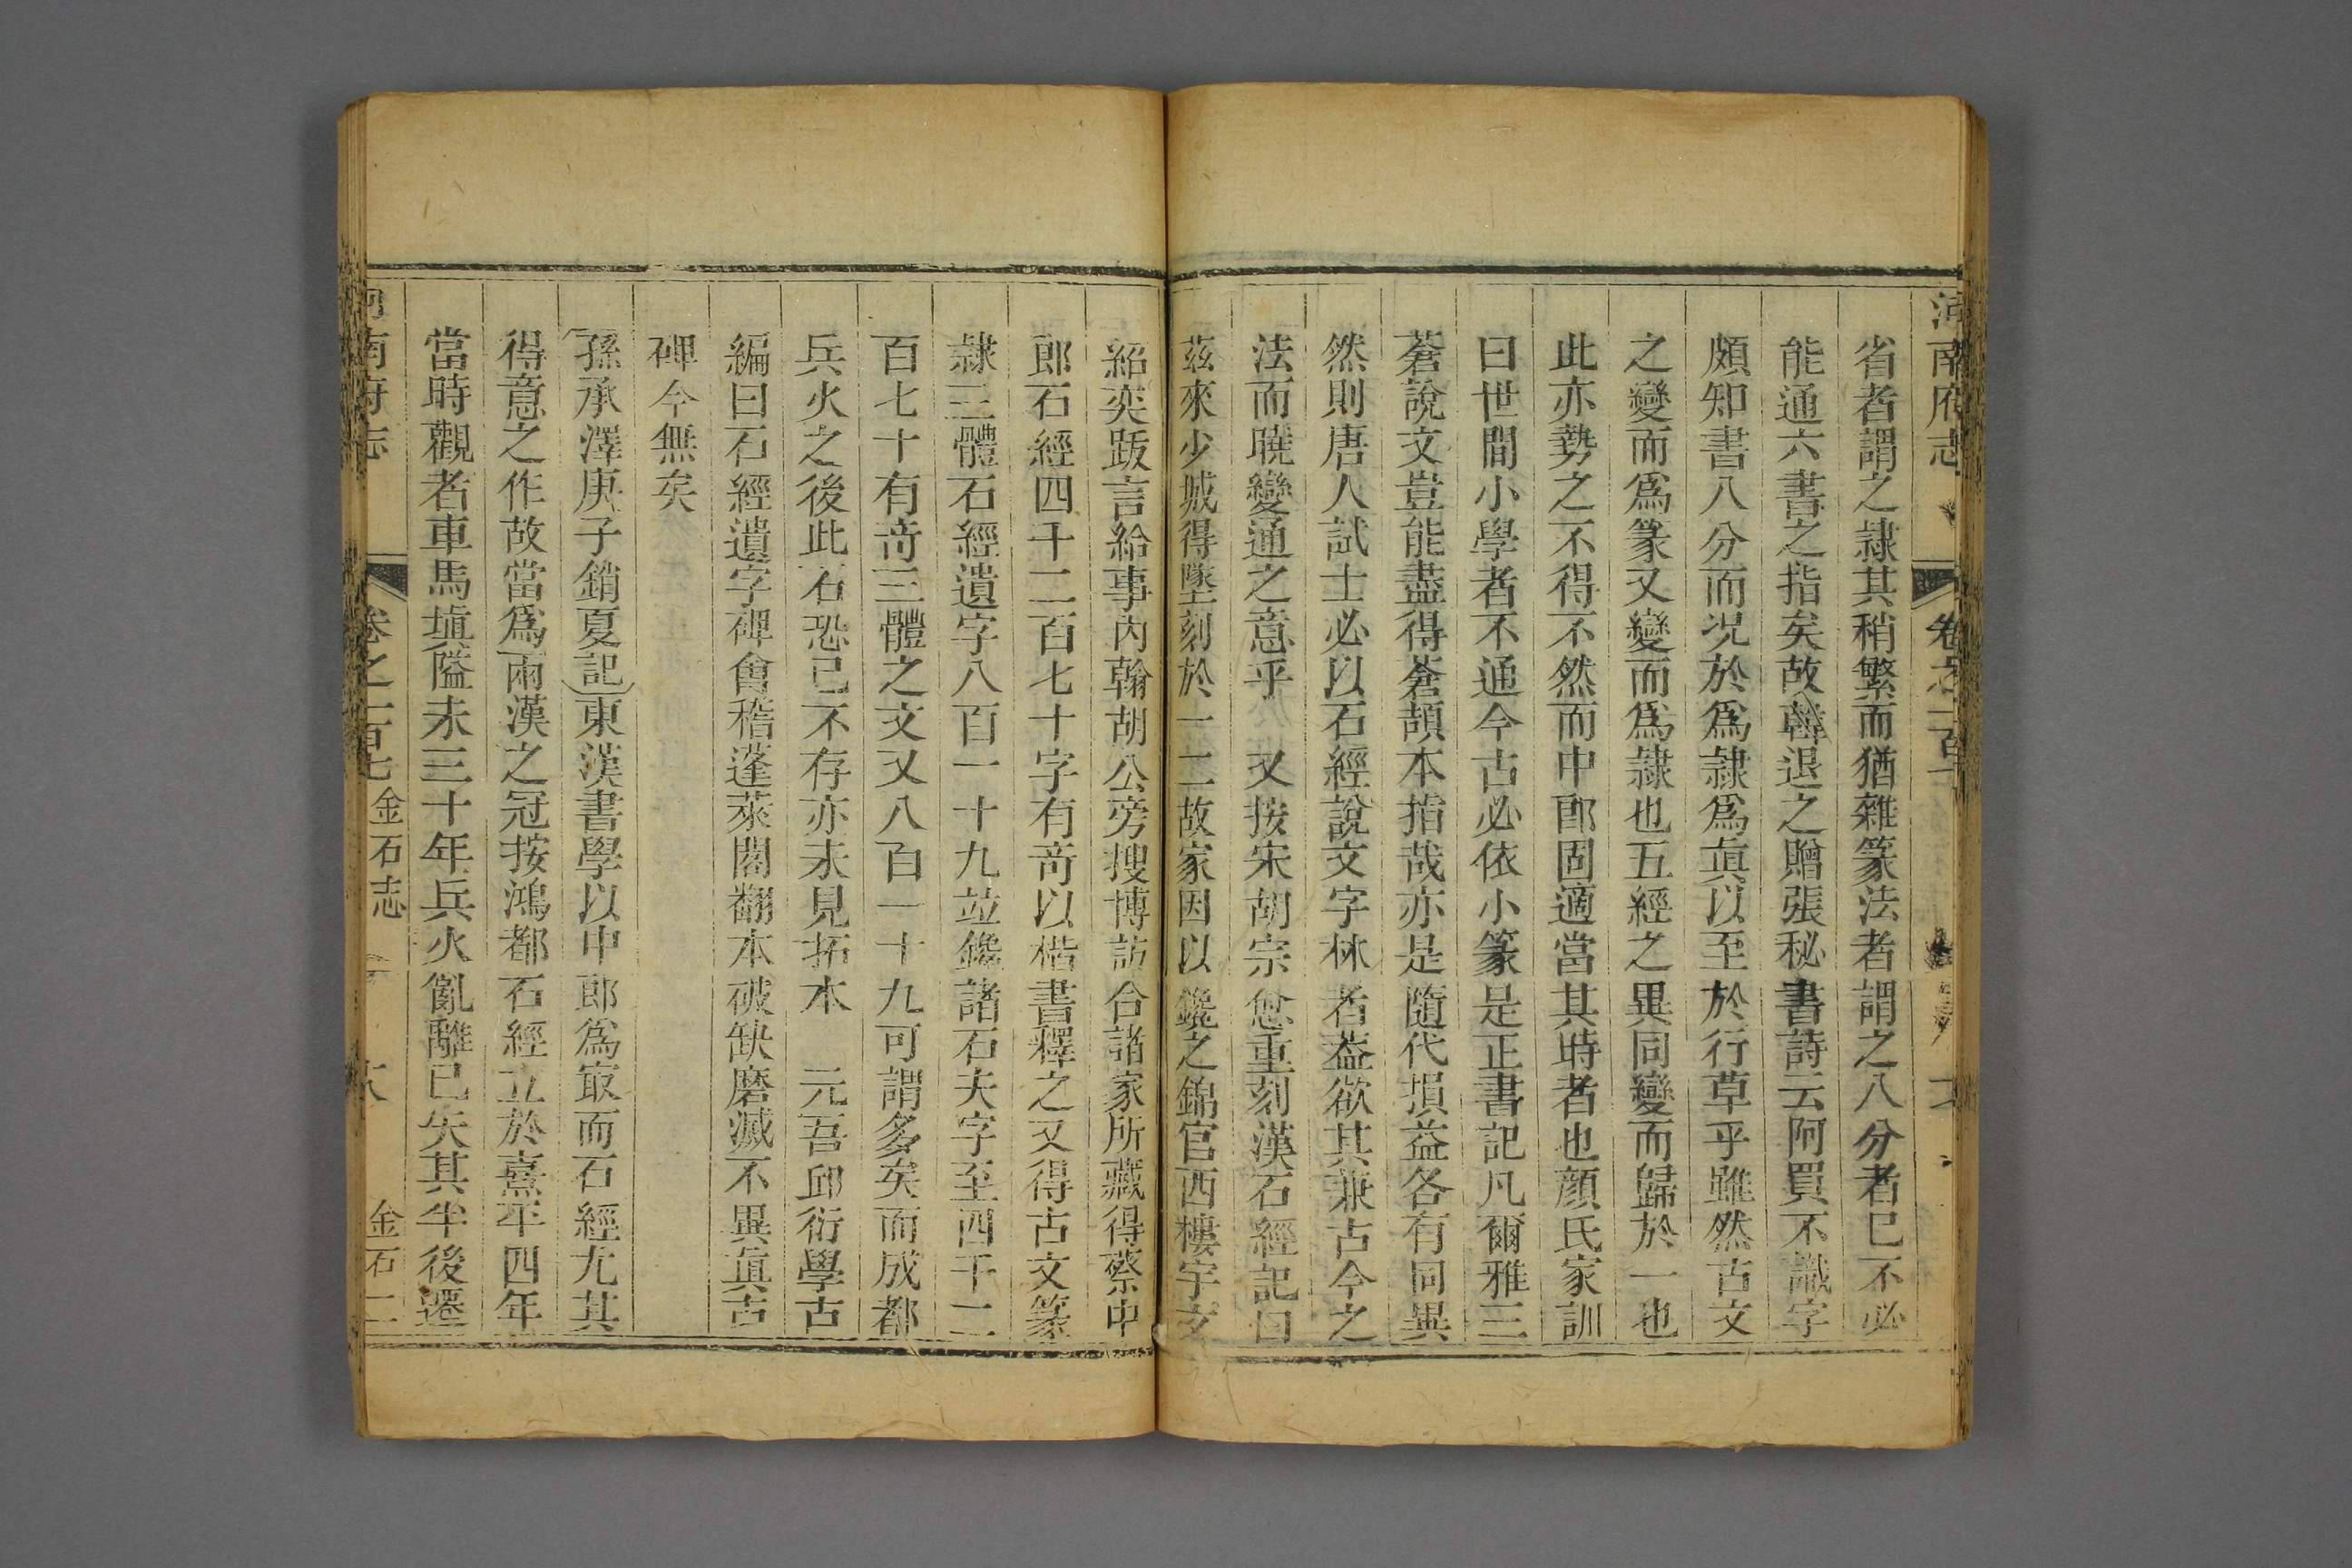 南府志
卷之一百
省者謂之隸其稍繁而猶雜篆法者謂之八分者已不必
能通六書之指矣故韓退之贈張秘書詩云阿買不識字
頗知書八分而况於爲隸爲真以至於行草乎雖然古文
之變而爲篆又變而爲隸也五經之異同變而歸於一也
此亦勢之不得不然而中郎固適當其時者也顔氏家訓
曰世間小學者不通今古必依小篆是正書記凡爾雅三
蒼說文豈能盡得蒼頡本指哉亦是隨代損益各有同異
然則唐人試士必以石經說文字林者葢欲其兼古今之
法而曉變通之意乎　又按宋胡宗愈重刻漢石經記曰
茲來少城得墜刻於一二故家因以鑱之錦官西樓宇文
紹奕跋言給事內翰胡公旁搜博訪合諸家所藏得蔡中
郎石經四千二百七十字有奇以楷書釋之又得古文篆
隸三體石經遺字八百一十九竝鑱諸石夫字至四千二
百七十有奇三體之文又八百一十九可謂多矣而成都
兵火之後此石恐已不存亦未見拓本　元吾邱衍學古
編曰石經遺字碑會稽蓬萊閣翻本破缺磨滅不異真古
碑今無矣
孫承澤庚子銷夏記東漢書學以中郎爲㝡而石經尤其
得意之作故當爲兩漢之冠按鴻都石經立於熹平四年
當時觀者車馬塡隘未三十年兵火亂離已失其半後遷
南府志
卷之一百七 金石志
金石二